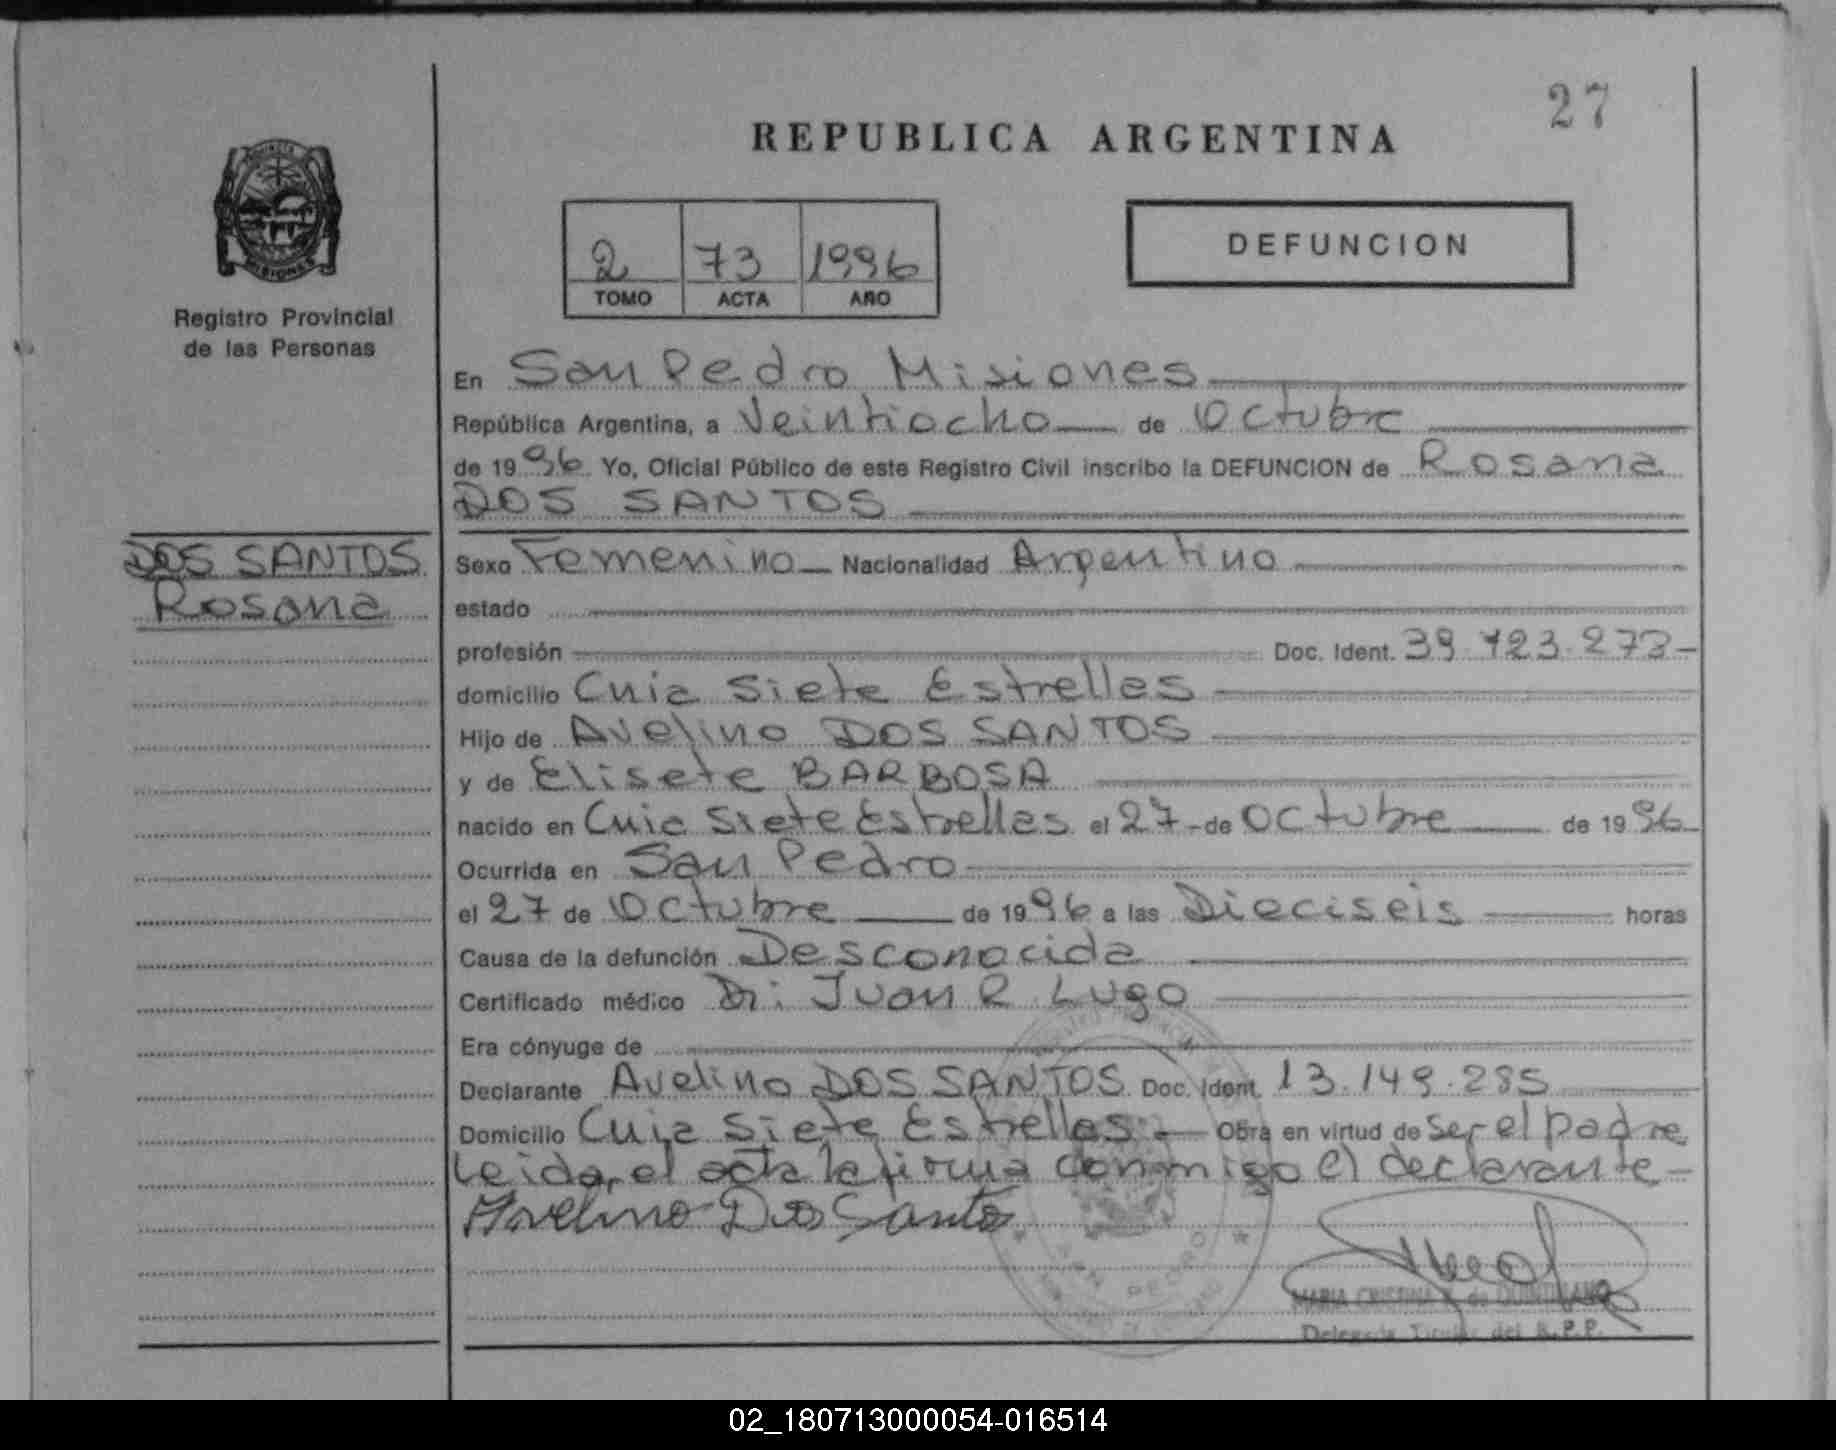 27
REPUBLICA ARGENTINA
PROVINCIA
MISIONES
Registro Provincial
de las Personas
2 73 1996
TOMO ACTA AÑO
DEFUNCION
En San Pedro Misiones
República Argentina, a Veintiocho de Octubre
de 1996 Yo, Oficial Público de este Registro Civil inscribo la DEFUNCION de Rosana
DOS SANTOS
DOS SANTOS
Rosana
Sexo Femenino Nacionalidad Argentino
estado
profesión Doc. Ident. 39.723.273
domicilio Cuia Siete Estrellas
Hijo de Avelino DOS SANTOS
y de Elisete BARBOSA
nacido en Cuia Siete Estrellas el 27 de Octubre de 1996
Ocurrida en San Pedro
el 27 de Octubre de 1996 a las Dieciseis horas
Causa de la defunción Desconocida
Certificado médico Dr: Juan R Lugo
Era cónyuge de
Declarante Avelino DOS SANTOS Doc. Ident. 13.149.285
Domicilio Cuia Siete Estrellas Obra en virtud de ser el padre
Leida, el acta la firma conmigo el declarante
Avelino Dos Santos
SAN PEDRO
MARIA CRISTINA de
Delegada Titular del R.P.P.
02_180713000054-016514